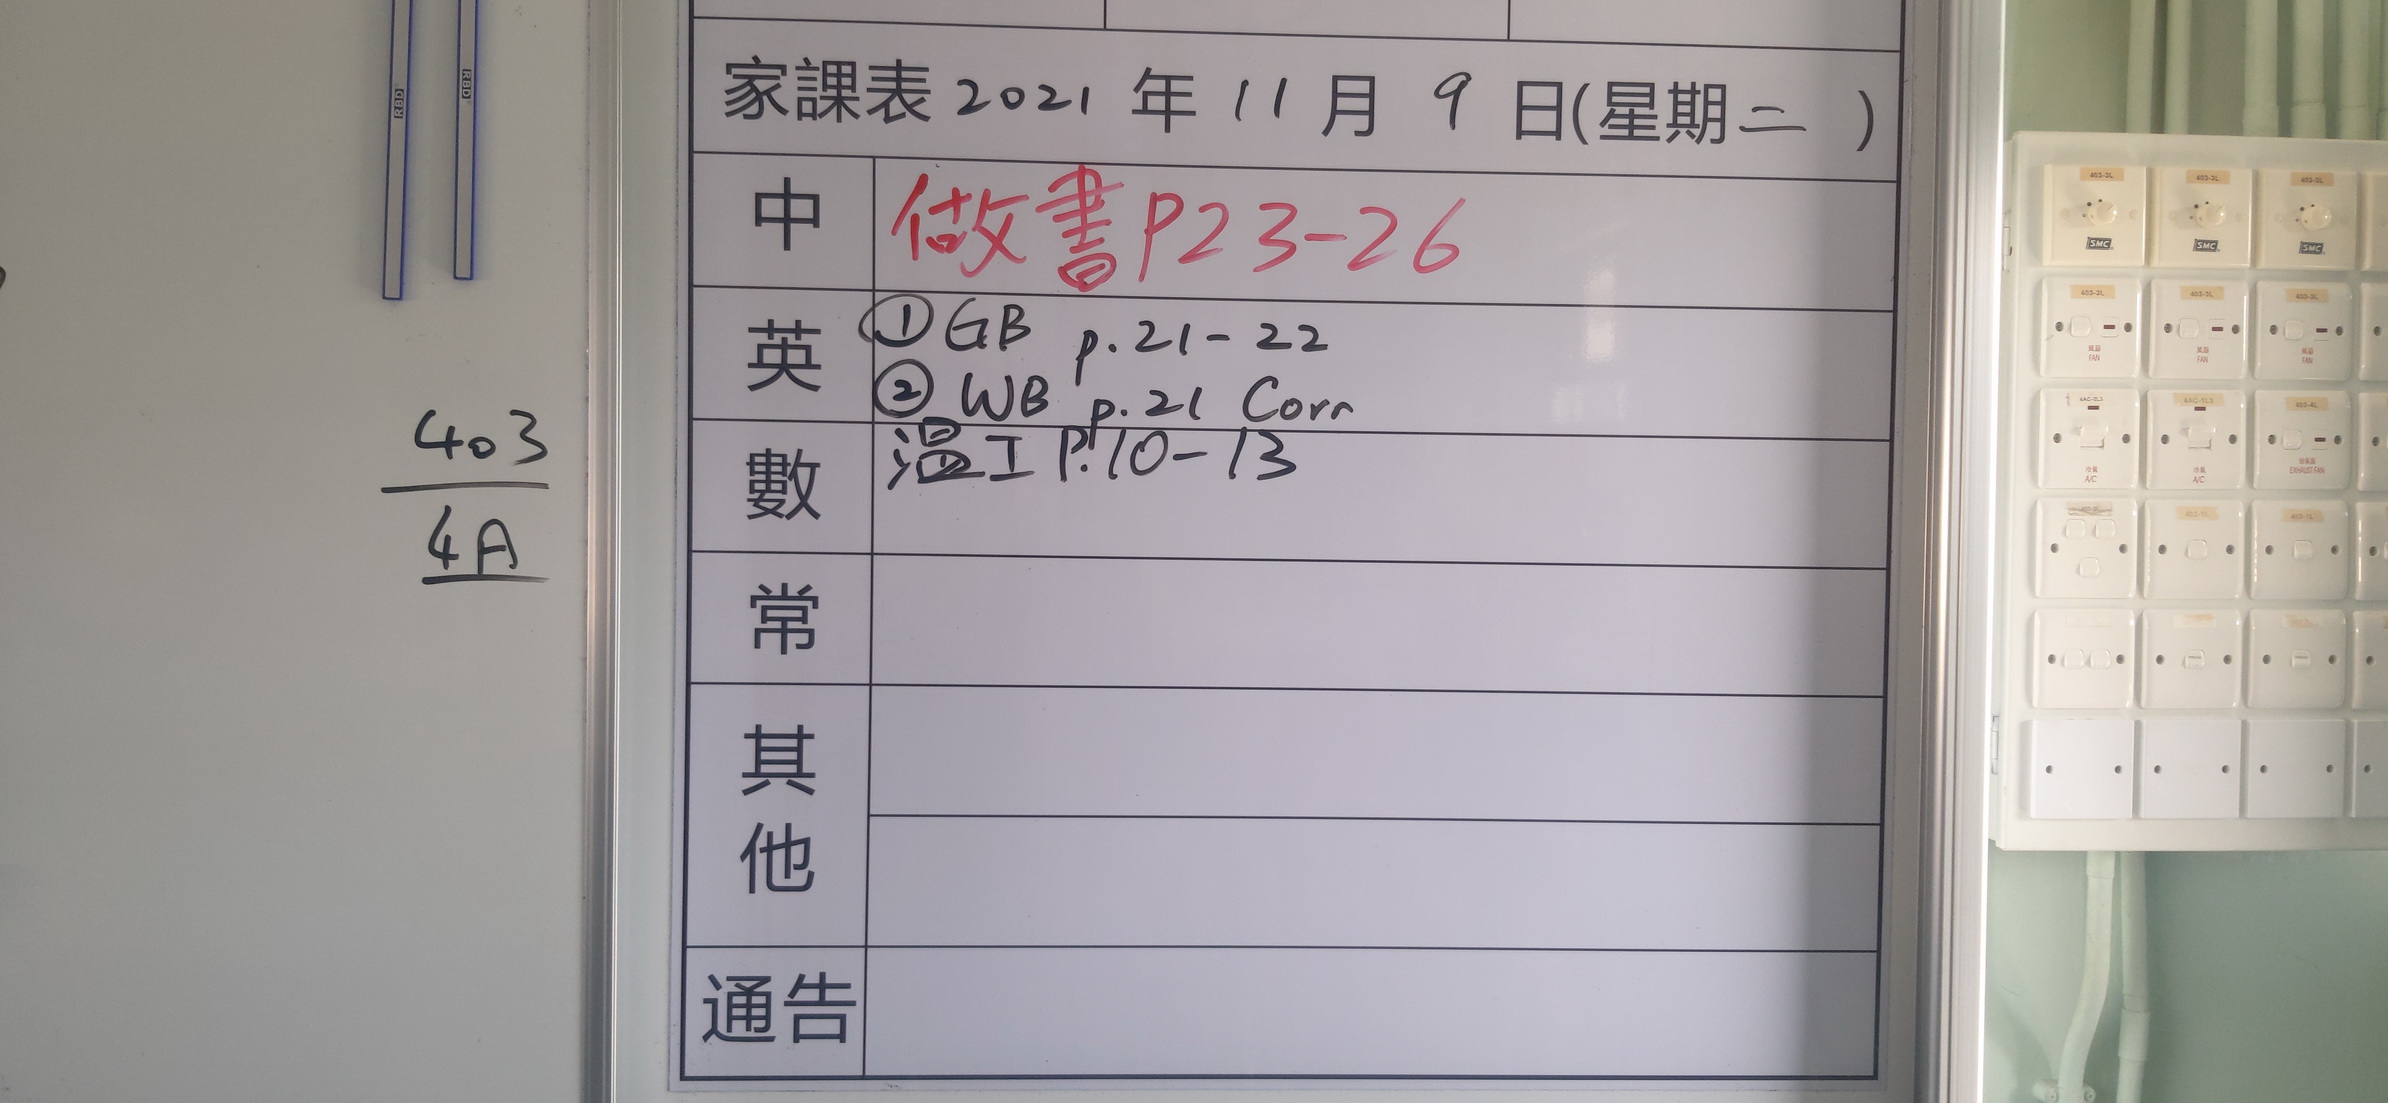 家課表 2021 年 11 月 9 日(星期二 )
中 做書 P23-26
英 ① GB p.21-22
② WB p.21 Corr
數 溫工 P.10-13
常
其他
通告
403
4A
RBD
RBD
403-3L
403-3L
403-3L
SMC
SMC
SMC
403-3L
403-3L
403-3L
風扇
FAN
風扇
FAN
風扇
FAN
4AC-2L3
4AC-1L3
403-4L
冷氣
A/C
冷氣
A/C
抽氣扇
EXHAUST FAN